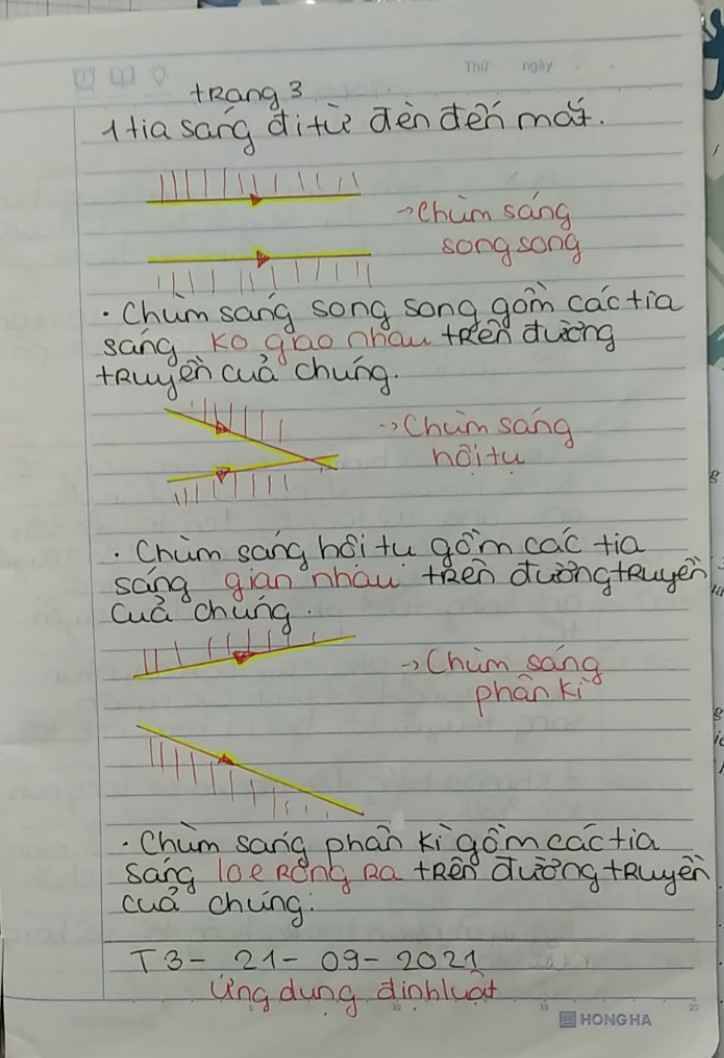 Thứ ngày
tRang 3
1 tia sáng đi từ đèn đến mắt.
→ Chùm sáng
song song
· Chùm sáng song song gồm các tia
sáng ko giao nhau trên đường
tRuyền của chúng.
→ Chùm sáng
hội tụ
· Chùm sáng hội tụ gồm các tia
sáng gian nhau tRên đường tRuyền
của chúng.
→ Chùm sáng
phân kì
· Chùm sáng phân kì gồm các tia
sáng loe Rộng Ra tRên đường tRuyền
của chúng.
T3 - 21 - 09 - 2021
Ứng dụng định luật
HONG HA